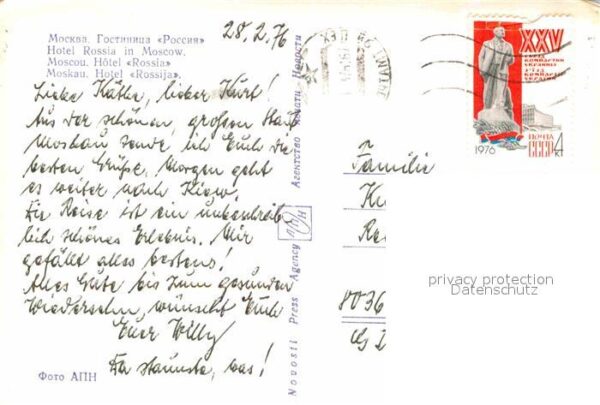 28.2.76
Москва. Гостиница «Россия»
Hotel Rossia in Moscow.
Moscou. Hôtel «Rossia»
Moskau. Hotel «Rossija».
Liebe Käthe, lieber Kurt!
Aus der schönen, großen Stadt
Moskau sende ich Euch die
besten Grüße. Morgen geht
es weiter nach Kiew.
Die Reise ist ein unbeschreib
lich schönes Erlebnis. Mir
gefällt alles bestens!
Alles Gute bis zum gesunden
Wiedersehn, wünscht Euch
Euer Willy
Da staunste, was!
Фото АПН
Novosti Press Agency АПН Агентство печати Новости
XXV
СЪЕЗД
КОМПАРТИИ
УКРАИНЫ
З'ЇЗД
КОМПАРТІЇ
УКРАЇНИ
1976
ПОЧТА
СССР
4к
Familie
8036
privacy protection
Datenschutz